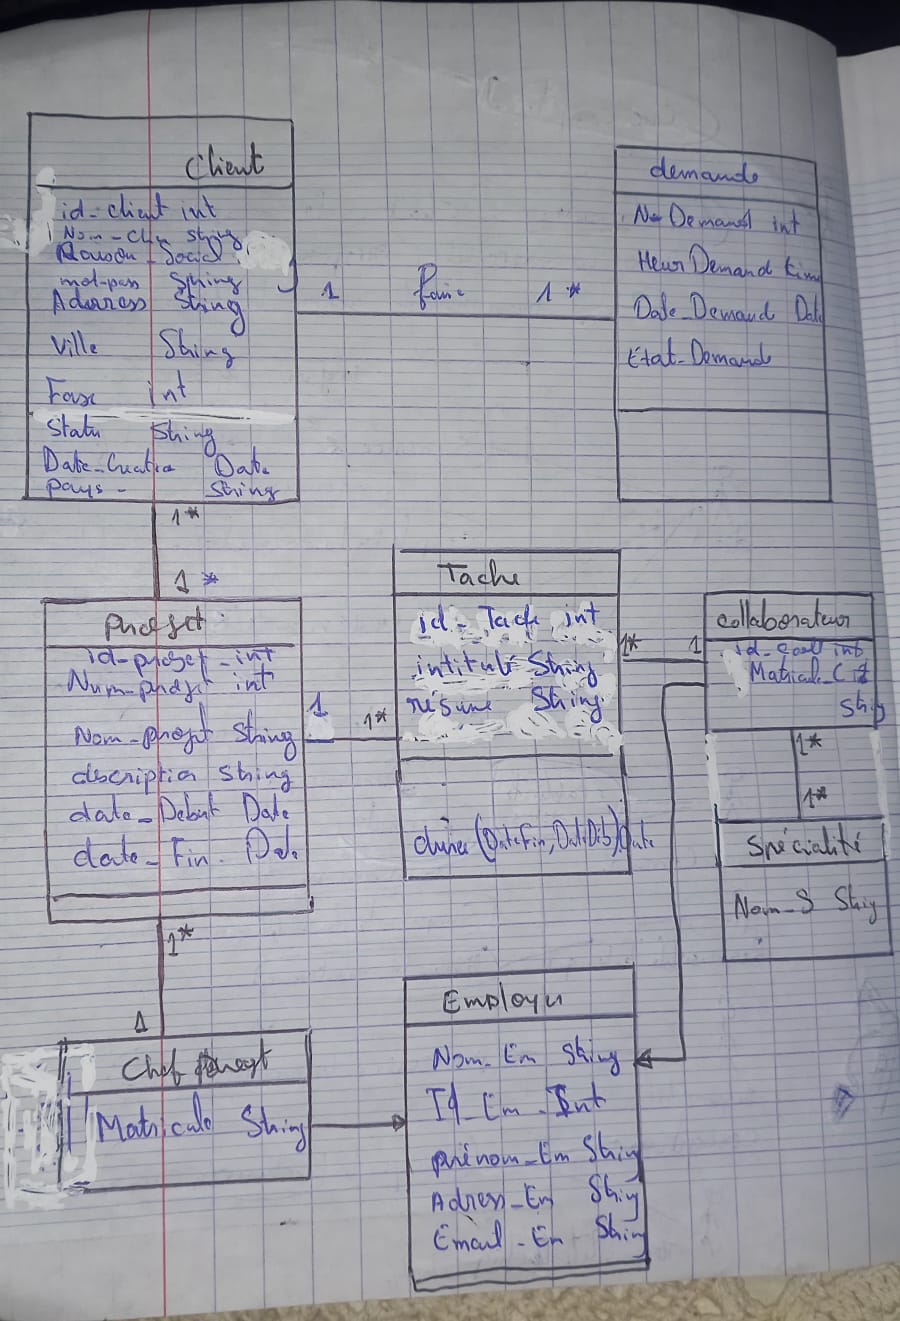 Client
id_client int
Nom_Cli String
Raison_Social
mot-pass String
Adaress String
Ville String
Fax int
Statu String
Date_Creatio Date
pays - String
1 faire 1*
demande
N-Demand int
Heur Demand time
Date_Demand Date
Etat_Demande
1*
1*
projet
id-projet int
Num-projet int
Nom_projet String
description String
date_Debut Date
date_Fin. Date
1
1*
Tache
id_Tache int
intitulé String
résume String
durée (DateFin, DateDéb) Date
1*
1
collaborateur
id_coll int
Matricule_C
String
1*
1*
Spécialité
Nom_S String
1*
1
Chef Projet
Matricule String
Employe
Nom_Em String
Id_Em Int
prénom_Em String
Adress_Em String
Email_Em String